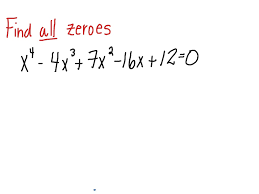 Find all zeroes
x⁴ - 4x³ + 7x² - 16x + 12 = 0